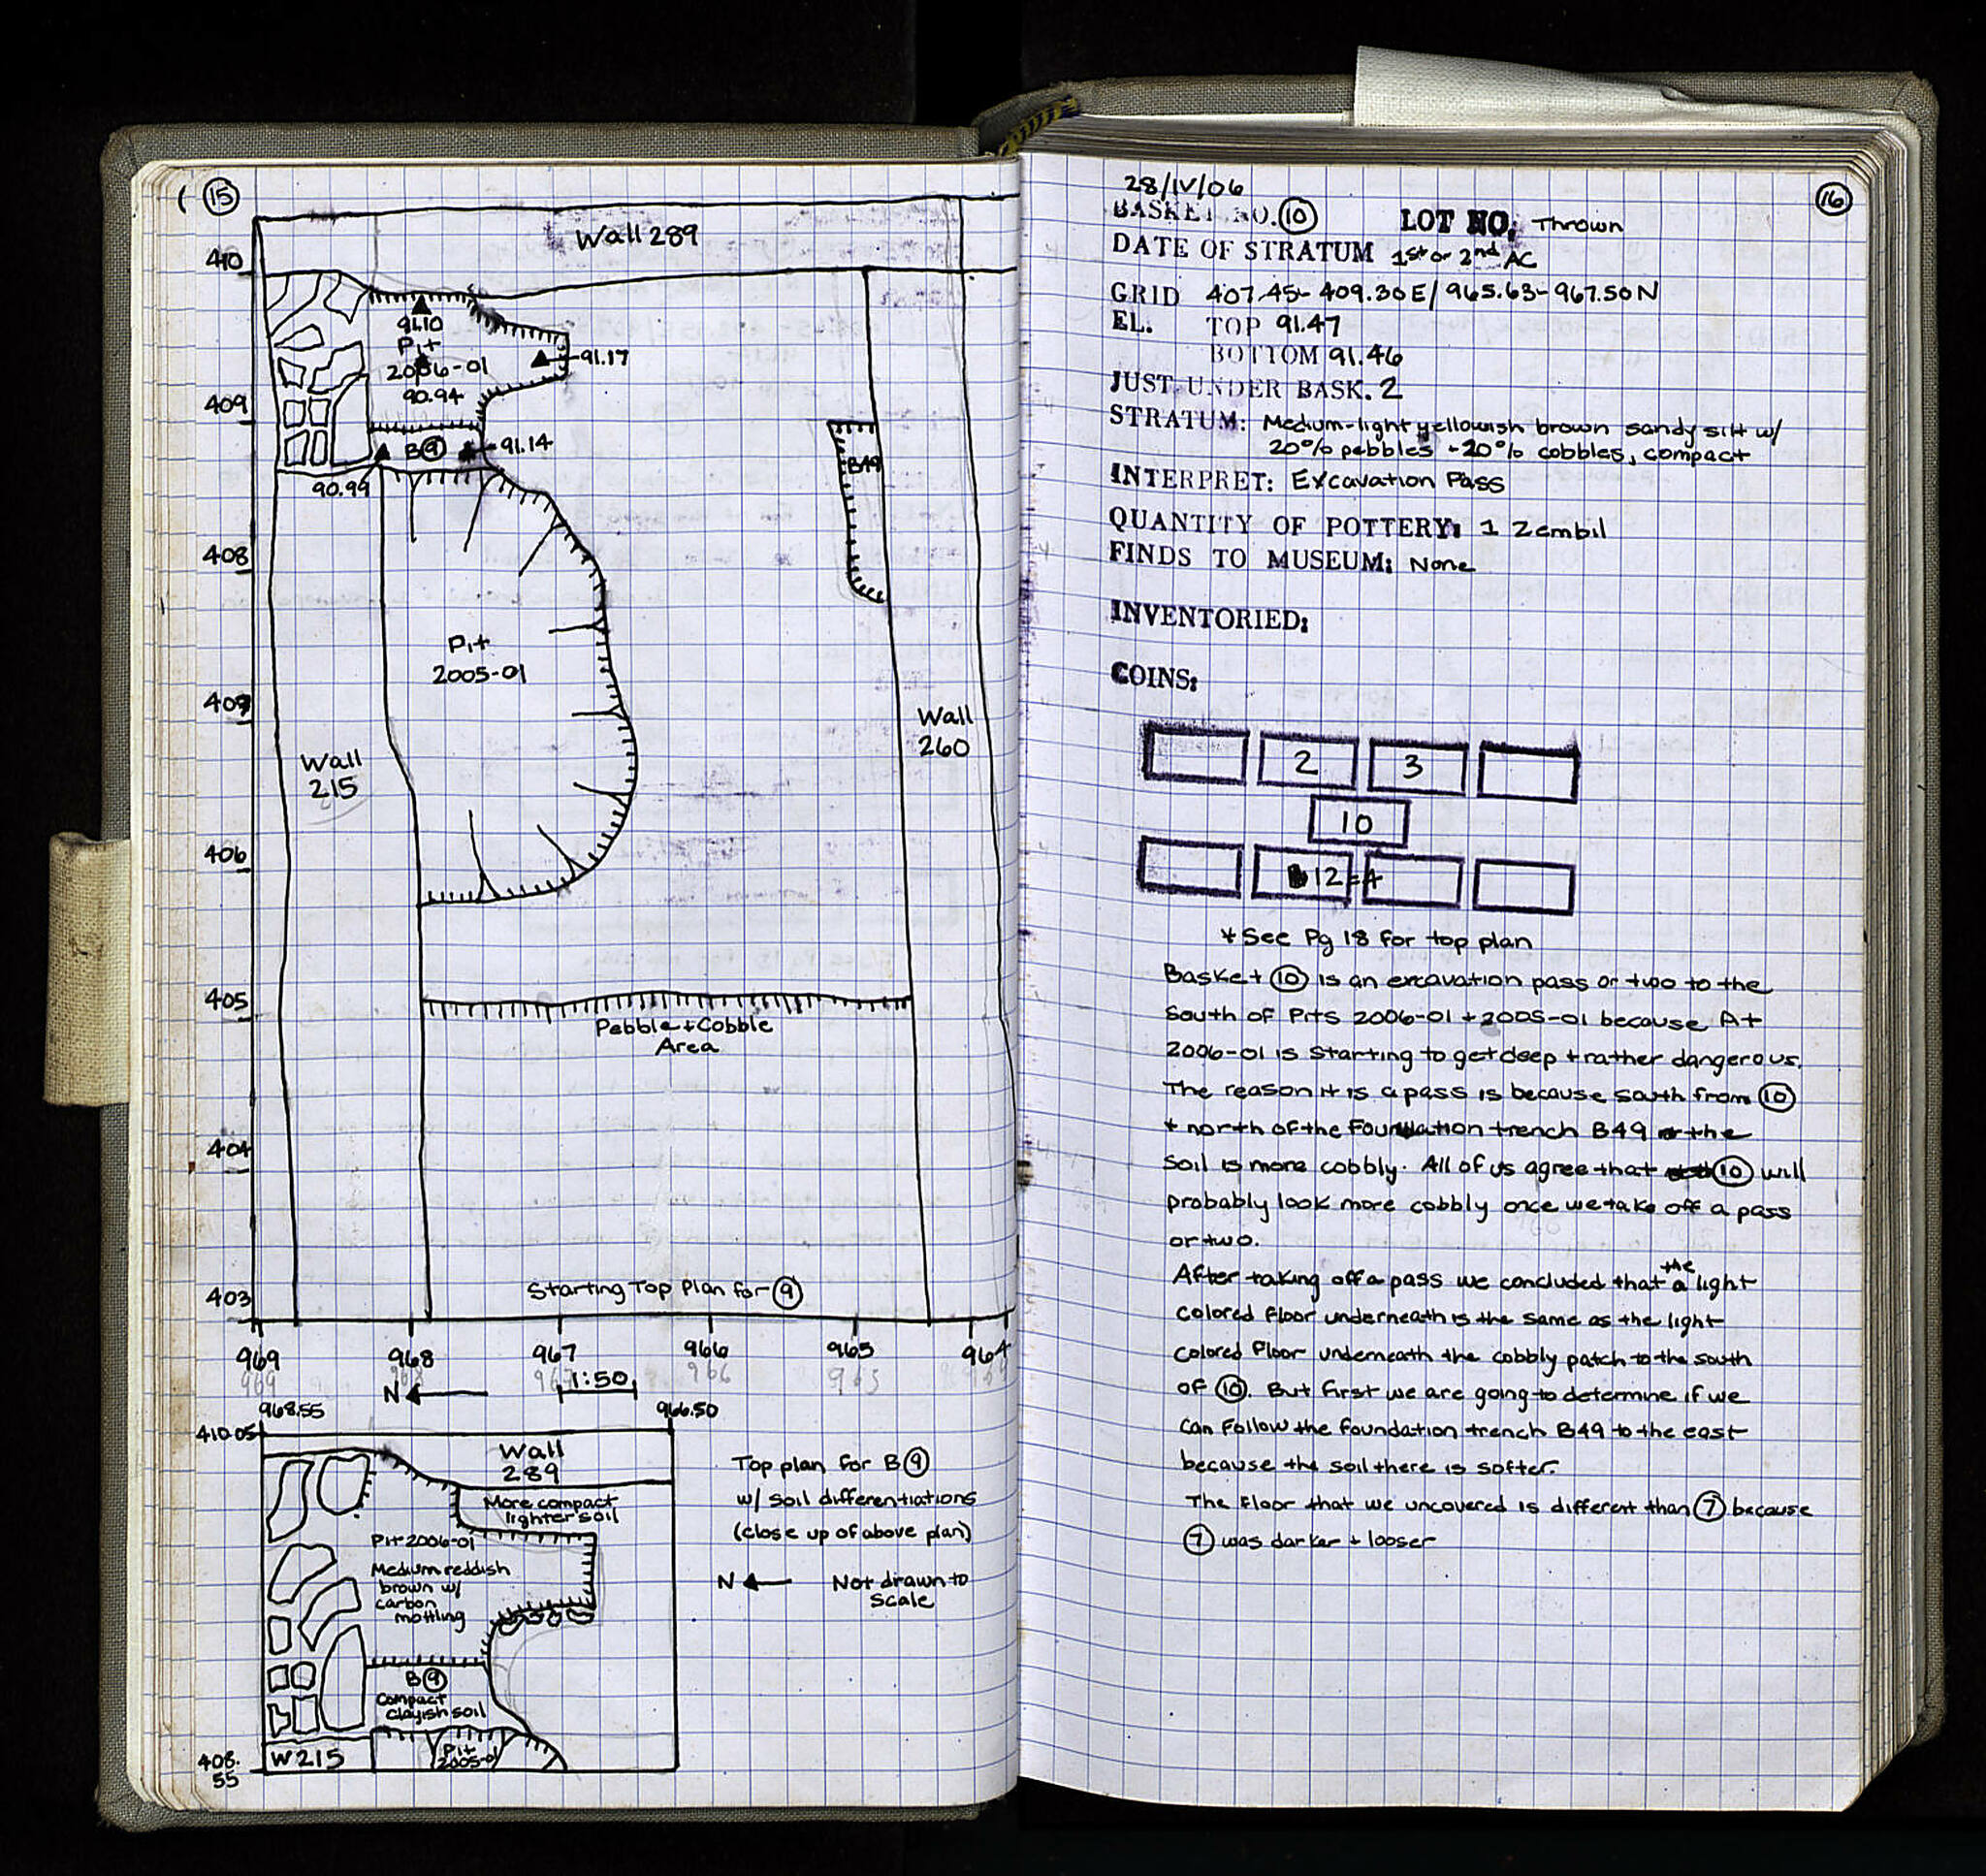 15
Wall 289
410
91.10
Pit
2006-01
91.17
90.94
409
B9
91.14
B49
90.99
408
Pit
2005-01
409
Wall
260
Wall
215
406
405
Pebble + Cobble
Area
404
Starting Top Plan for 9
403
969 968 967 966 965 964
969 968 967 966 965
N 1:50
968.55 966.50
410.05
Wall
289
More compact
lighter soil
Pit 2006-01
Medium reddish
brown w/
carbon
mottling
B9
Compact
clayish soil
Pit
2005-01
W215
408.
55
Top plan for B9
w/ soil differentiations
(close up of above plan)
N Not drawn to
scale
28/IV/06
16
BASKET NO. 10 LOT NO. Thrown
DATE OF STRATUM 1st or 2nd AC
GRID 407.45-409.30E/965.63-967.50N
EL. TOP 91.47
BOTTOM 91.46
JUST UNDER BASK. 2
STRATUM: Medium-light yellowish brown sandy silt w/
20% pebbles + 20% cobbles, compact
INTERPRET: Excavation Pass
QUANTITY OF POTTERY: 1 Zembil
FINDS TO MUSEUM: None
INVENTORIED:
COINS:
2 3
10
12 = 4
*See Pg 18 for top plan
Basket 10 is an excavation pass or two to the
South of Pits 2006-01 + 2005-01 because Pit
2006-01 is starting to get deep + rather dangerous.
The reason it is a pass is because south from 10
+ north of the foundation trench B49 the
soil is more cobbly. All of us agree that 10 will
probably look more cobbly once we take off a pass
or two.
After taking off a pass we concluded that a the light
colored floor underneath is the same as the light
colored floor underneath the cobbly patch to the south
of 10. But first we are going to determine if we
can follow the foundation trench B49 to the east
because the soil there is softer.
The floor that we uncovered is different than 7 because
7 was darker + looser